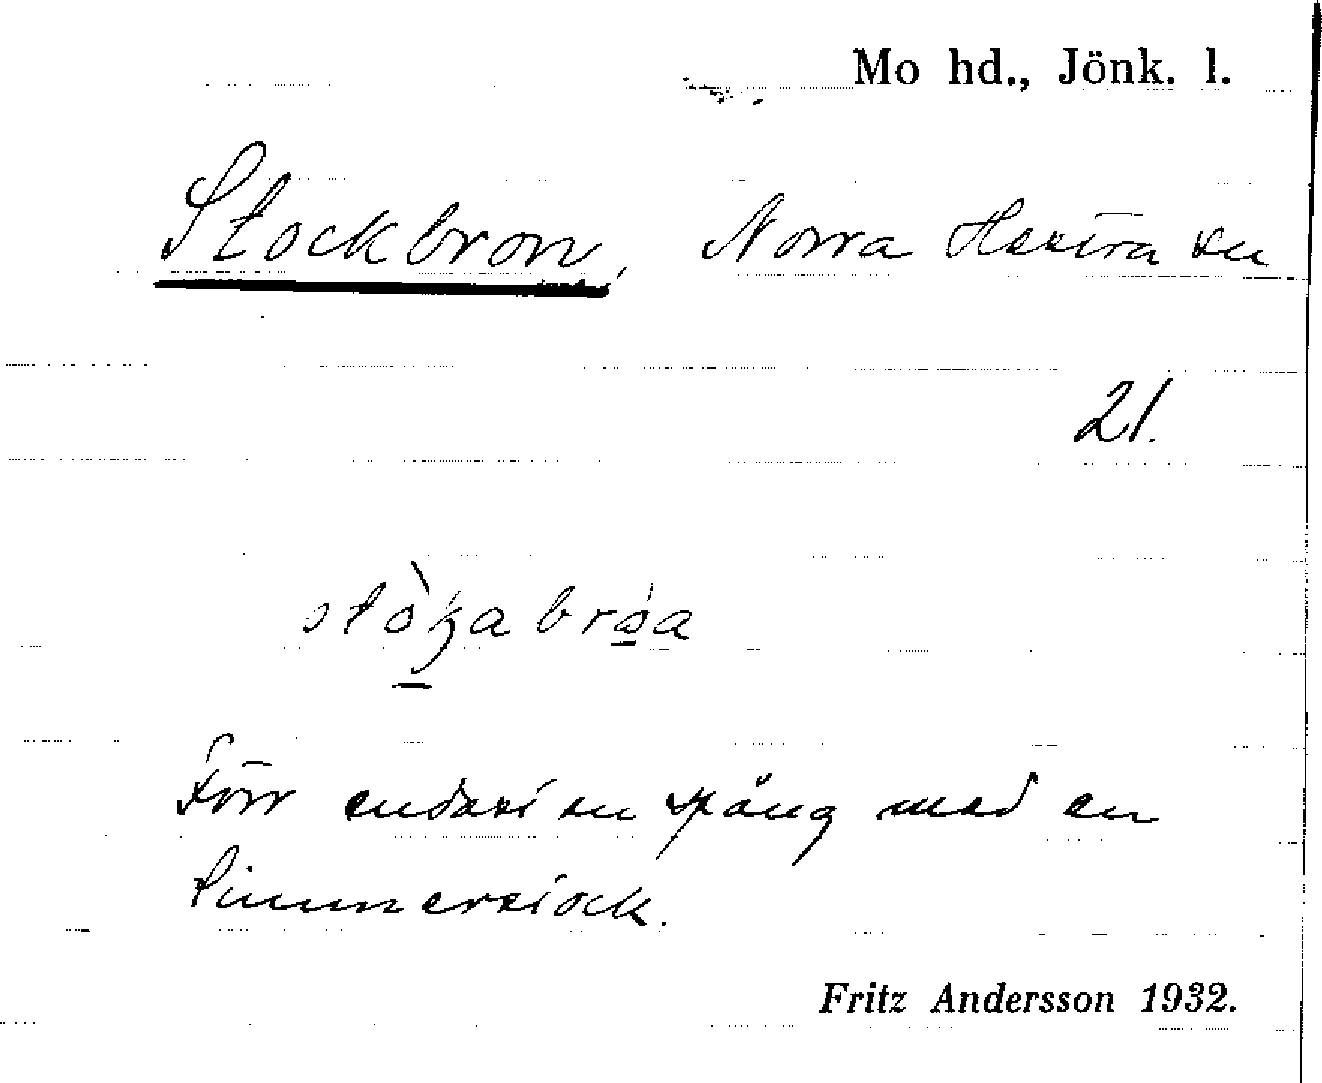 Mo hd., Jönk. l.
Stockbron, Norra Hestra sn
21.
stòka bróa
Förr endast en spång med en
timmerstock.
Fritz Andersson 1932.